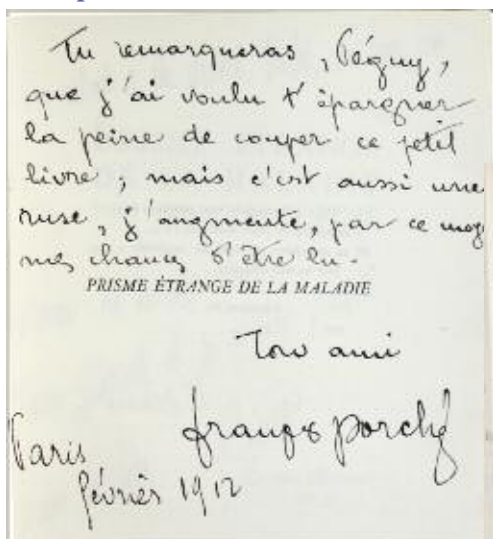 Tu remarqueras, Péguy,
que j'ai voulu t'épargner
la peine de couper ce petit
livre ; mais c'est aussi une
ruse, j'augmente, par ce moy
mes chances d'être lu.
PRISME ÉTRANGE DE LA MALADIE
Ton ami
françois porché
Paris
février 1912